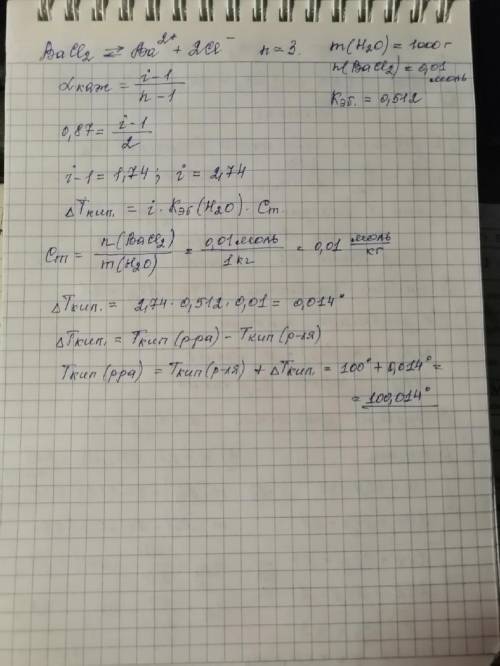 BaCl₂ ⇄ Ba²⁺ + 2Cl⁻ n = 3. m(H₂O) = 1000 г
n(BaCl₂) = 0,01 моль
Kэб. = 0,512
αкаж = i-1 / n-1
0,87 = i-1 / 2
i-1 = 1,74; i = 2,74
ΔTкип. = i · Kэб(H₂O) · Cm
Cm = n(BaCl₂) / m(H₂O) = 0,01 моль / 1 кг = 0,01 моль/кг
ΔTкип. = 2,74 · 0,512 · 0,01 = 0,014°
ΔTкип. = Tкип(р-ра) - Tкип(р-ля)
Tкип(р-ра) = Tкип(р-ля) + ΔTкип. = 100° + 0,014° =
= 100,014°